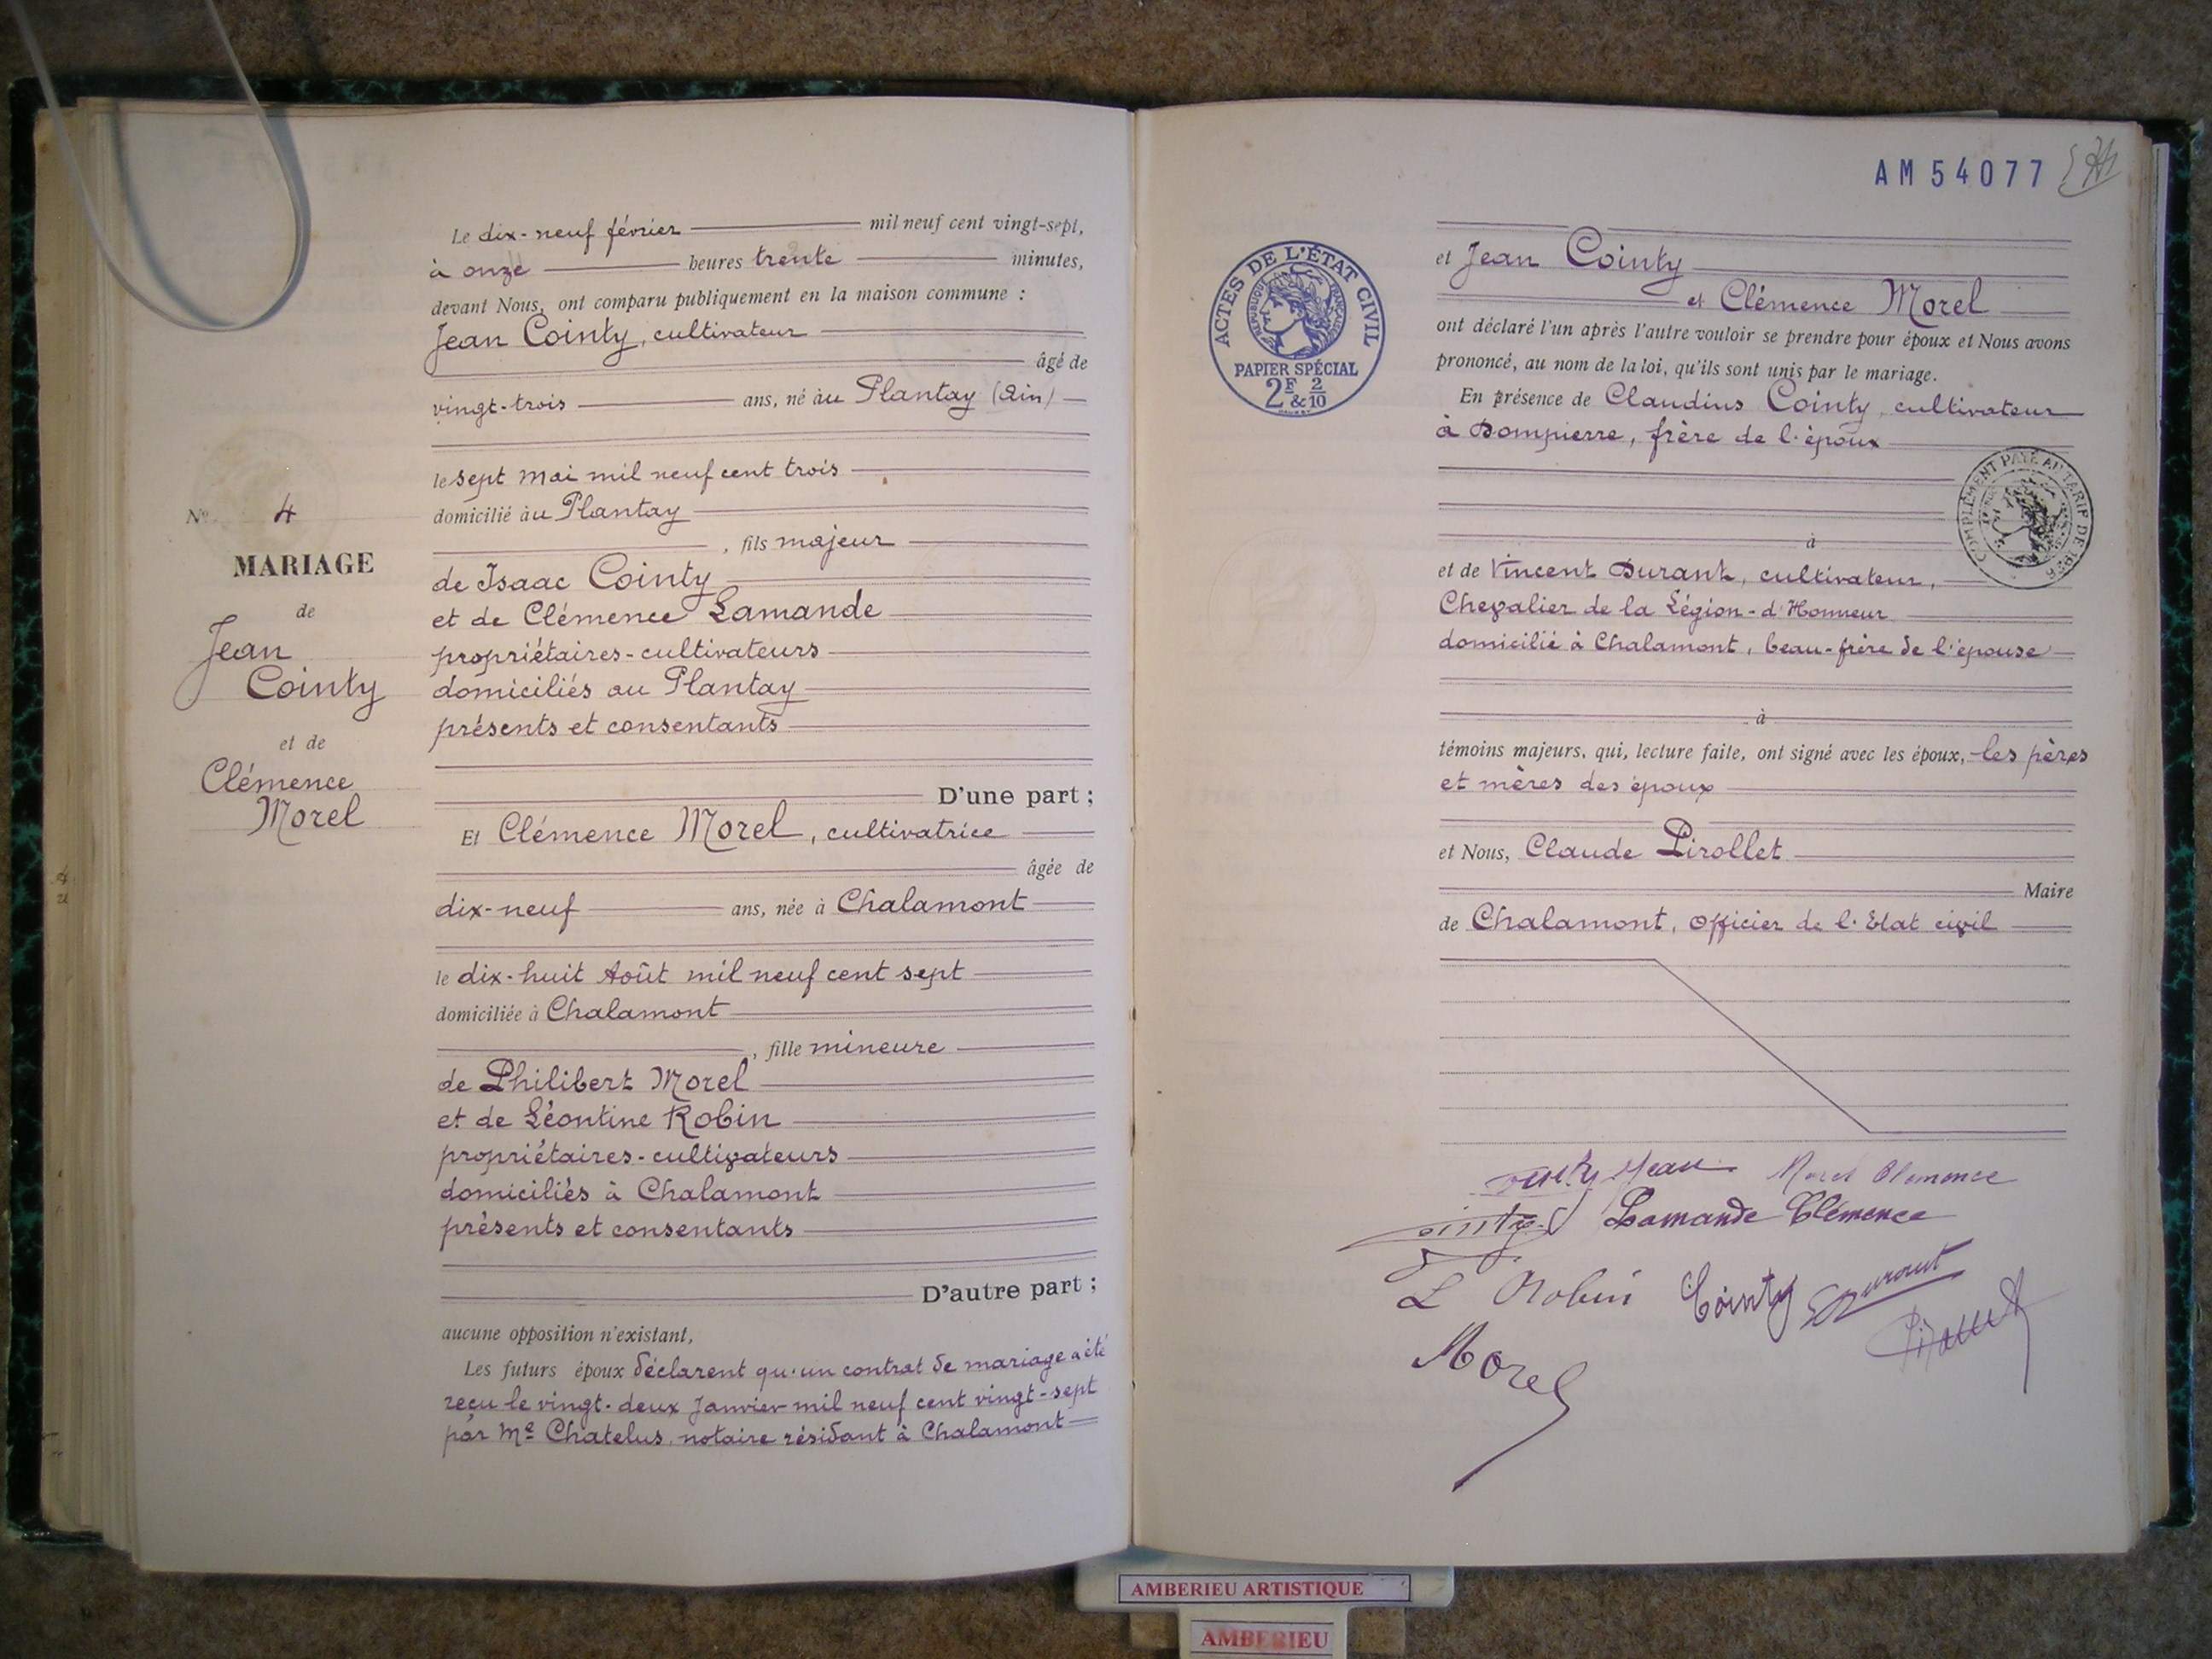 Le dix-neuf février mil neuf cent vingt-sept,
à onze heures trente minutes,
devant Nous, ont comparu publiquement en la maison commune :
Jean Cointy, cultivateur
âgé de
vingt-trois ans, né àu Plantay (Ain)
le sept Mai mil neuf cent trois
domicilié àu Plantay
, fils majeur
de Isaac Cointy
et de Clémence Lamande
propriétaires-cultivateurs
domiciliés au Plantay
présents et consentants
D'une part ;
Et Clémence Morel, cultivatrice
âgée de
dix-neuf ans, née à Chalamont
le dix-huit Août mil neuf cent sept
domiciliée à Chalamont
, fille mineure
de Philibert Morel
et de Léontine Robin
propriétaires-cultivateurs
domiciliés à Chalamont
présents et consentants
D'autre part ;
aucune opposition n'existant,
Les futurs époux déclarent qu'un contrat de mariage a été
reçu le vingt-deux Janvier mil neuf cent vingt-sept
par Me Chatelus, notaire résidant à Chalamont
No 4
MARIAGE
de
Jean
Cointy
et de
Clémence
Morel
AM 54077
ACTES DE L'ÉTAT CIVIL
RÉPUBLIQUE FRANÇAISE
PAPIER SPÉCIAL
2F & 2/10
et Jean Cointy
et Clémence Morel
ont déclaré l'un après l'autre vouloir se prendre pour époux et Nous avons
prononcé, au nom de la loi, qu'ils sont unis par le mariage.
En présence de Claudius Cointy, cultivateur
à Dompierre, frère de l'époux
COMPLÉMENT PAYÉ AU TARIF DE 1926
à
et de Vincent Durant, cultivateur,
Chevalier de la Légion-d'Honneur
domicilié à Chalamont, beau-frère de l'épouse
à
témoins majeurs, qui, lecture faite, ont signé avec les époux, les pères
et mères des époux
et Nous, Claude Pirollet
Maire
de Chalamont, Officier de l'Etat civil
Cointy Jean Morel Clemence
Cointy Lamande Clémence
L Robin Cointy Durant
Morel
AMBERIEU ARTISTIQUE
AMBERIEU